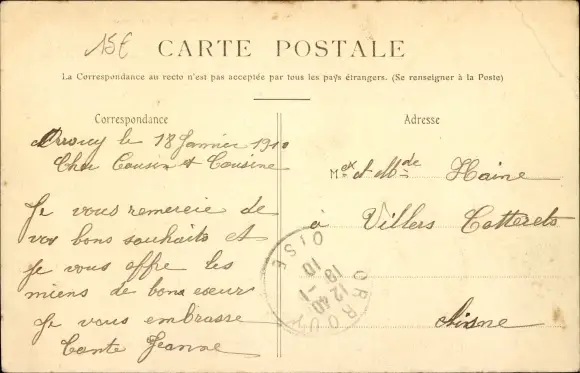 15€
CARTE POSTALE
La Correspondance au recto n'est pas acceptée par tous les pays étrangers. (Se renseigner à la Poste)
Correspondance
Adresse
Orrouy le 18 Janvier 1910
Cher Cousin et Cousine
Je vous remercie de
vos bons souhaits et
je vous offre les
miens de bon cœur
Je vous embrasse
Tante Jeanne
Mr et Mde Haine
à Villers Cotterets
Aisne
ORROUY OISE
1240
18 - 1
10